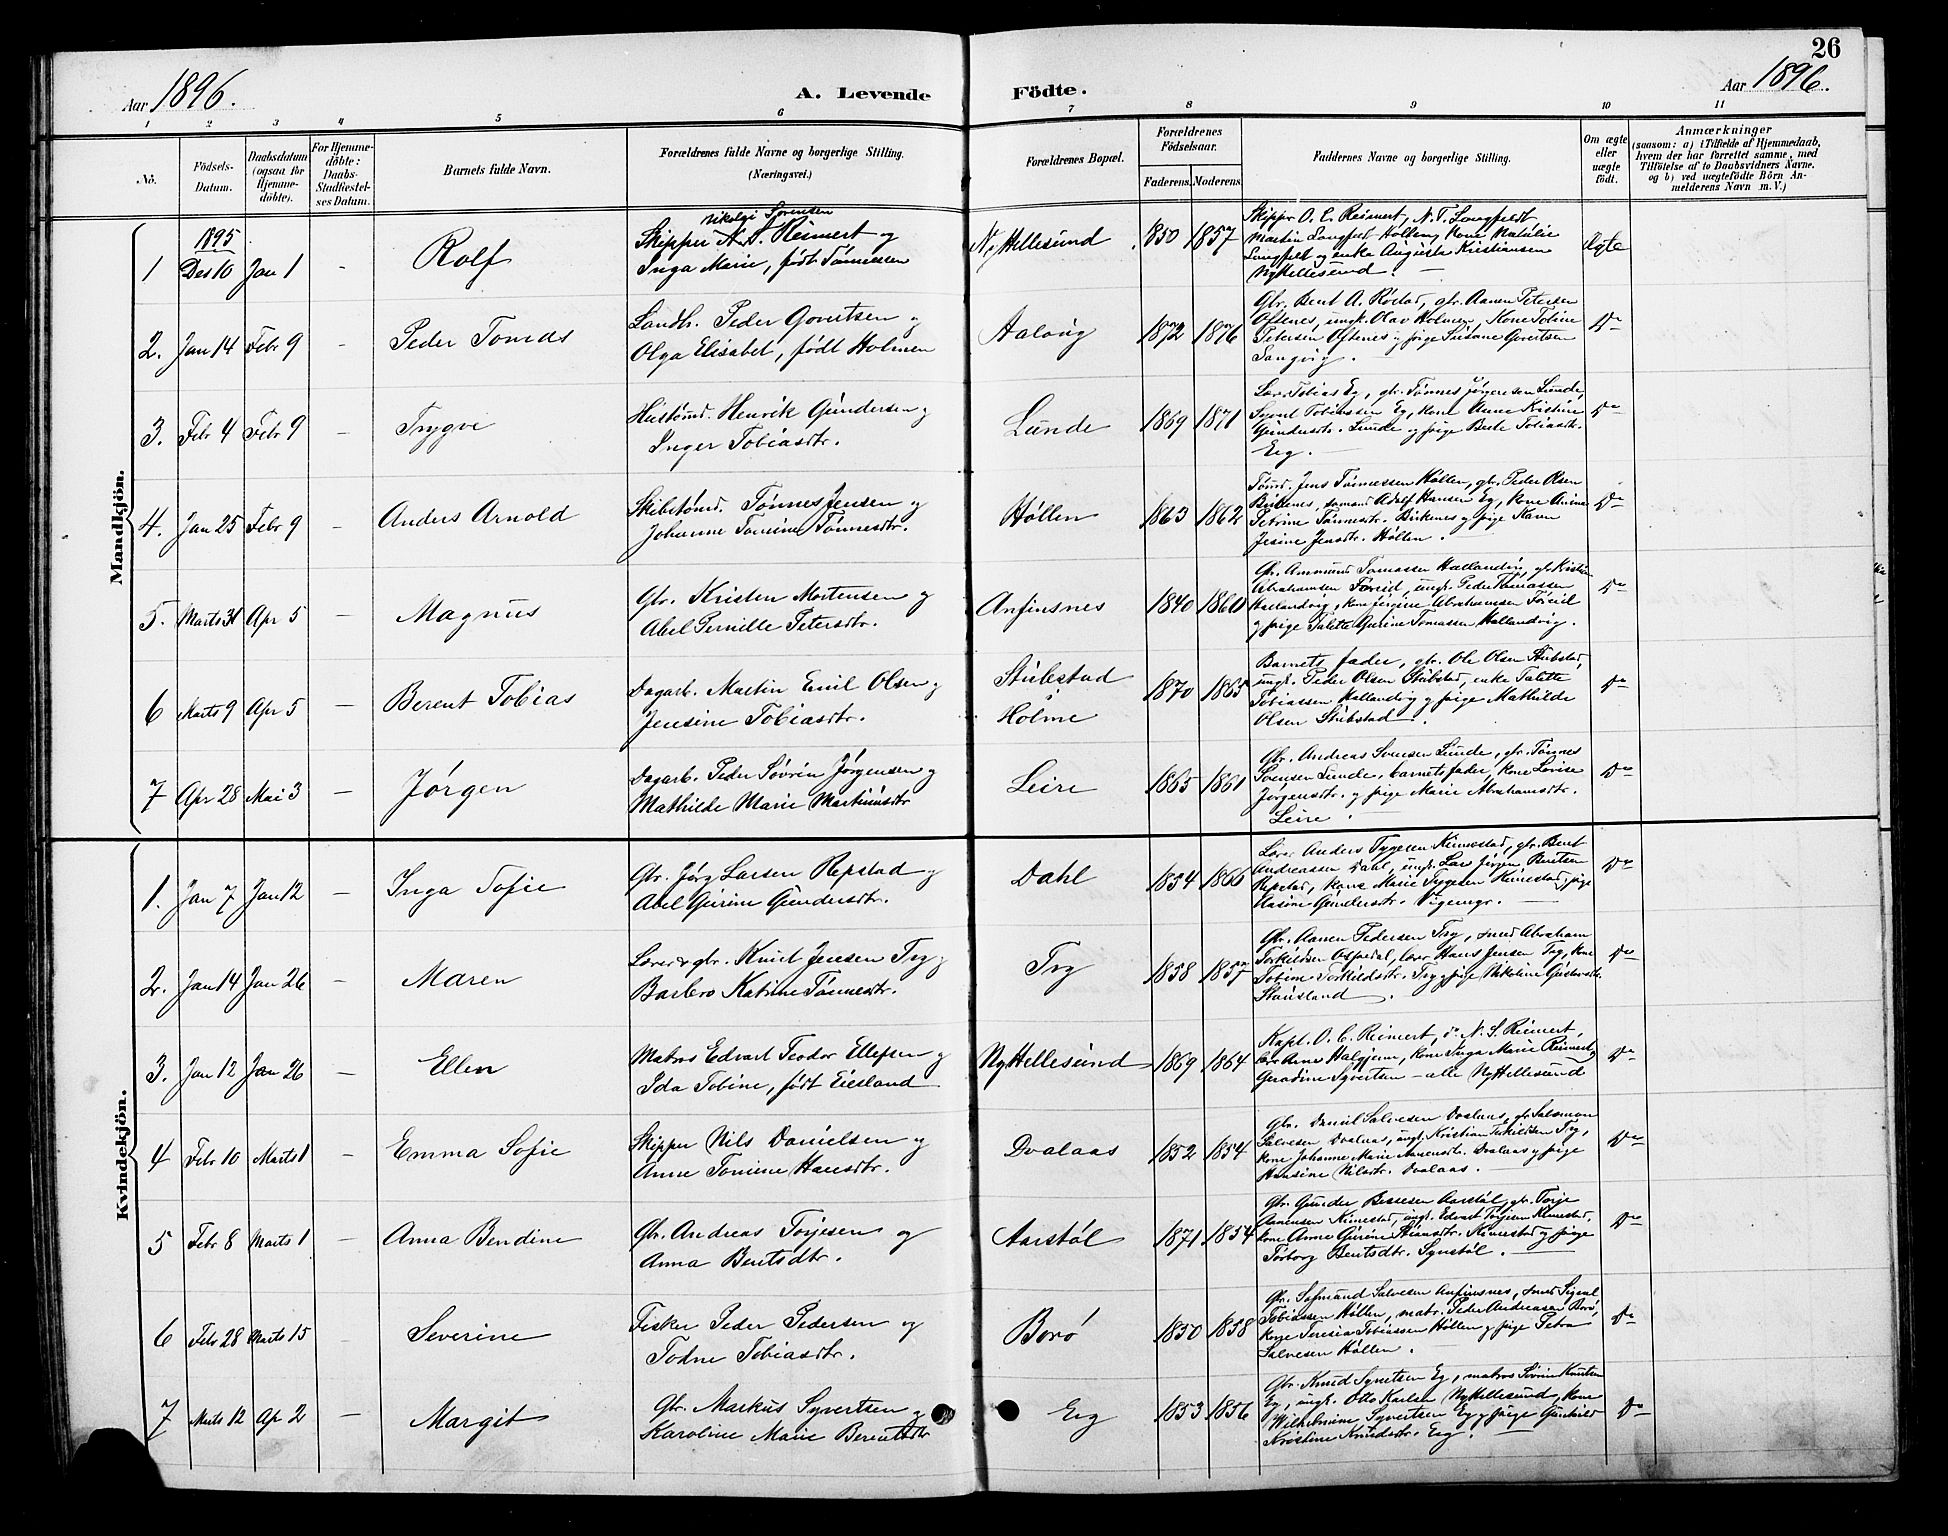 26
Aar 1896.
A. Levende Födte.
Aar 1896.
1 2 3 4 5 6 7 8 9 10 11
No.
Födsels-Datum.
Daabsdatum (ogsaa for Hjemme-döbte).
For Hjemme-döbte: Daabs-Stadfæstel-ses Datum.
Barnets fulde Navn.
Forældrenes fulde Navne og borgerlige Stilling. (Næringsvei.)
Forældrenes Bopæl.
Forældrenes Födselsaar.
Faderens. Moderens.
Faddernes Navne og borgerlige Stilling.
Om ægte eller uægte födt.
Anmærkninger
(saasom: a) i Tilfælde af Hjemmedaab,
hvem der har forrettet samme, med
Tilföielse af to Daabsvidners Navne.
og b) ved uægtefödte Börn An-
melderens Navn m. V.)
Mandkjön.
1 1895 Des 10 Jan 1 - Rolf
Nikolai Sørensen
Skipper N. S. Reimert og
Inga Marie, født Tønnessen
Ny Hellesund 1850 1857
Skipper O. C. Reimert, N. T. Langfeldt
Martin Langfeldt Hollen, Kone Natalie
Langfeldt og enke Augusta Kristiansen
Ny Hellesund.
Ægte
2. Jan 14 Febr 9 - Peder Tomas
Landh. Peder Govertsen og
Olga Elisabet, født Holmen
Aalvig 1872 1876
Gbr. Bent A. Røstad, gbr. Aanen Petersen
Oftenes, ungk. Olav Holmen, Kone Tobine
Petersen Oftenes og pige Susane Govertsen
Langvig.
Do
3. Febr 4 Febr 9 - Trygve
Hustømd. Henrik Gundersen og
Inger Tobiasdtr.
Lunde 1869 1871
Lars Tobias Eg, gbr. Tønnes Jørgensen Lunde,
Syvert Tobiassen Eg, kone Anne Kristine
Gundersdtr. Lunde og pige Berte Tobiasdtr.
Eeg.
Do
4. Jan 25 Febr 9 - Anders Arnold
Skibstømd. Tønnes Jensen og
Johanne Tomine Tønnesdtr.
Høllen 1863 1862
Tømd. Jens Tønnessen Høllen, gbr. Peder Olsen
Birkenes, sømand Adolf Hansen Eg, kone Anne
Petrine Tønnesdtr. Birkenes og pige Karen
Jesine Jensdtr. Høllen.
Do
5. Marts 31 Apr 5 - Magnus
Gbr. Kristen Mortensen og
Abel Pernille Petersdtr.
Anfinsnes 1840 1860
Gbr. Ammund Tomassen Hallandvig, gbr. Kristian
Abrahamsen Føreid, ungk. Peder Thomassen
Hallandvig, kone Jørgine Abrahamsen Føreid
og pige Talette Gurine Tomassen Hallandvig.
Do
6 Marts 9 Apr 5 - Berent Tobias
Dagarb. Martin Emil Olsen og
Jensine Tobiasdtr.
Stubstad i Holme 1870 1865
Barnets fader, gbr. Ole Olsen Stubstad,
ungk. Peder Olsen Stubstad, enke Talette
Tobiassen Hallandvig og pige Mathilde
Olsen Stubstad.
Do
7 Apr 28 Mai 3 - Jørgen
Dagarb. Peder Søvrin Jørgensen og
Mathilde Marie Markusdtr
Leire 1865 1861
Gbr. Andreas Svensen Lunde, gbr. Tønnes
Svensen Lunde, barnets fader, kone Lovise
Jørgensdtr. og pige Marie Abrahamsdtr.
Leire.
Do
Kvindekjön.
1. Jan 7 Jan 12 - Inga Sofie
Gbr. Jørg Larsen Repstad og
Abel Gurine Gundersdtr.
Dahl 1854 1866
Lærer Anders Tygesen Kimestad, gbr. Bent
Andreassen Dahl, ungk. Lars Jørgen Bentsen
Repstad, kone Marie Tygesen Kimestad, pige
Hasine Gundersdtr. Vigemyr.
Do
2. Jan 14 Jan 26 - Maren
Lærer & gbr. Knut Jensen Try og
Barbro Katrine Tønnesdtr.
Try 1858 1857
Gbr. Aanen Pedersen Try, smed Abraham
Torkildsen Ospedal, lærer Hans Jensen Try, kone
Tobine Torkildsdtr. Try og pige Nikoline Gustavsdtr.
Stausland.
Do
3. Jan 12 Jan 26 - Ellen
Matros Edvart Teodor Ellefsen og
Ida Tobine, født Eiesland
Ny Hellesund 1869 1864
Kapt. O. C. Reimert, do N. S. Reimert,
lods Arne Halgjem, kone Inga Marie Reimert og
Geradine Syvertsen - alle Ny Hellesund
Do
4 Febr 10 Marts 1 - Emma Sofie
Skipper Nils Danielsen og
Anne Tomine Hansdtr.
Dvalaas 1852 1854
Gbr. Daniel Salvesen Dvalaas, gbr. Salomon
Salvesen Dvalaas, ungk. Kristian Terkildsen Try,
kone Johanne Marie Aanensdtr. Dvalaas og pige
Hansine Nilsdtr. Dvalaas.
Do
5 Febr 8 Marts 1 - Anna Bendine
Gbr. Andreas Torjesen og
Anna Bentsdtr.
Aarstøl 1871 1854
Gbr. Gunder Bessesen Aarstøl, gbr. Torje
Aanensen Kimestad, ungk. Edvart Torjesen Kimestad,
kone Anne Gurine Steansdtr. Kimestad og pige
Torborg Bentsdtr. Synstøl.
Do
6 Febr 28 Marts 15 - Severine
Fisker Peder Pedersen og
Todne Tobiasdtr.
Borø 1850 1858
Gbr. Sofmund Salvesen Anfinsnes, smed Sigval
Tobiassen Høllen, matr. Peder Andreasen Borø,
kone Teresia Tobiassen Høllen og pige Petra
Salvesen Høllen.
Do
7 Marts 12 Ap 2 - Margit
Gbr. Markus Syvertsen og
Karoline Marie Berentsdtr
Eeg 1853 1856
Gbr. Knud Syvertsen Eg, matros Søvrin Knutsen
Eg, ungk. Otto Karlen Ny Hellesund, kone
Wilhelmine Syvertsen Eg og pige Gunhild
Kristine Knudsdtr. Eeg.
Do